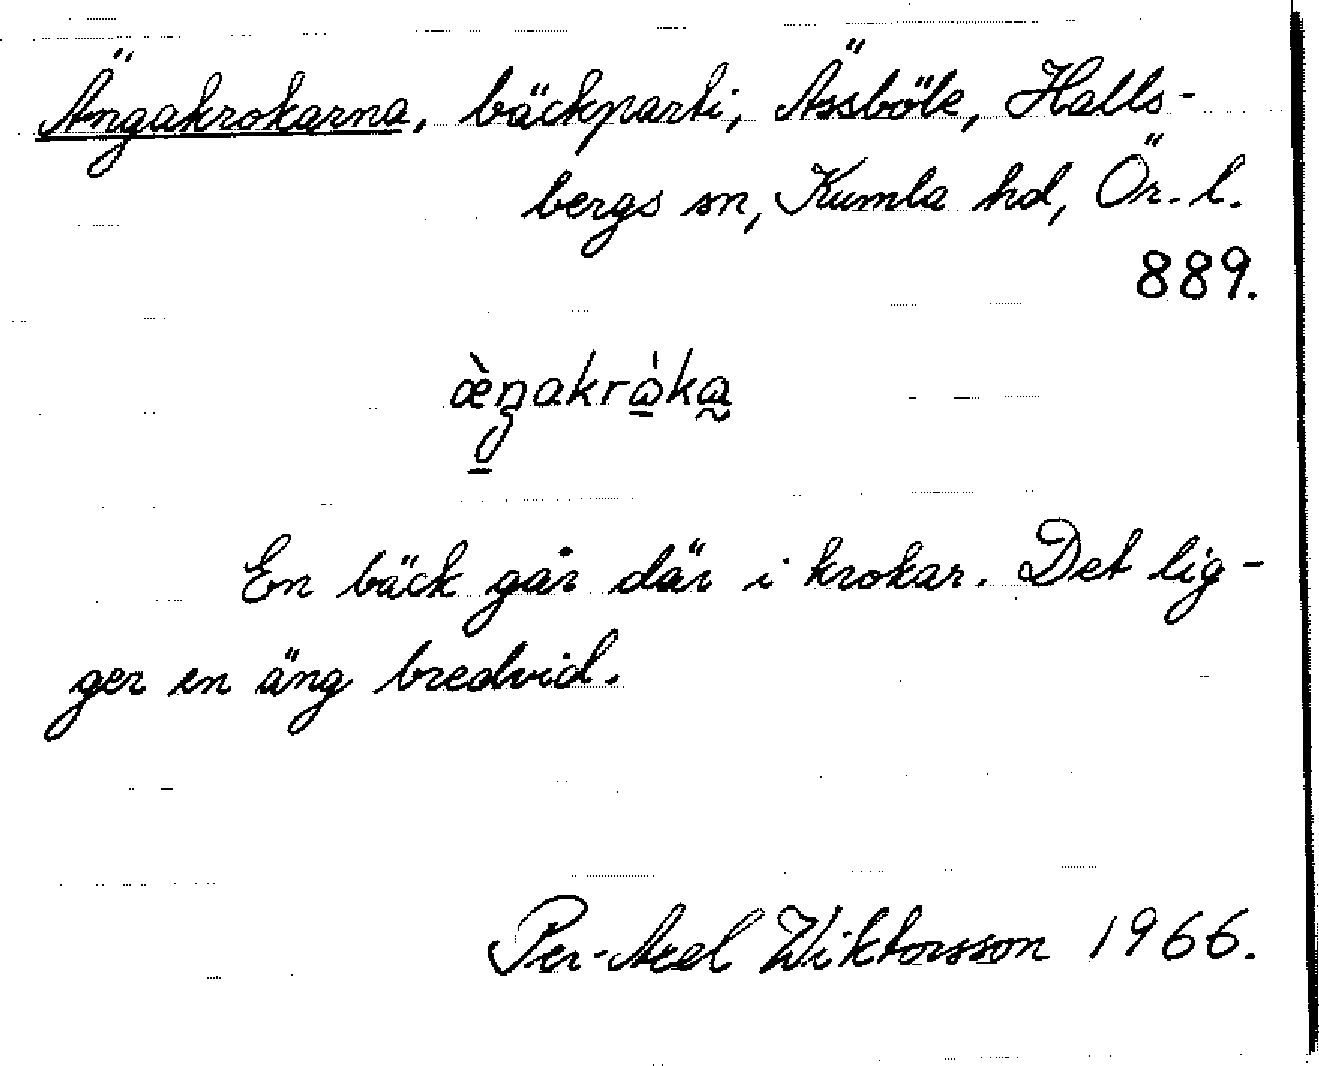 Ängakrokarna, bäckparti, Ässböle, Halls-
bergs sn, Kumla hd, Ör. l.
889.
En bäck går där i krokar. Det lig-
ger en äng bredvid.
Per-Axel Wiktorsson 1966.